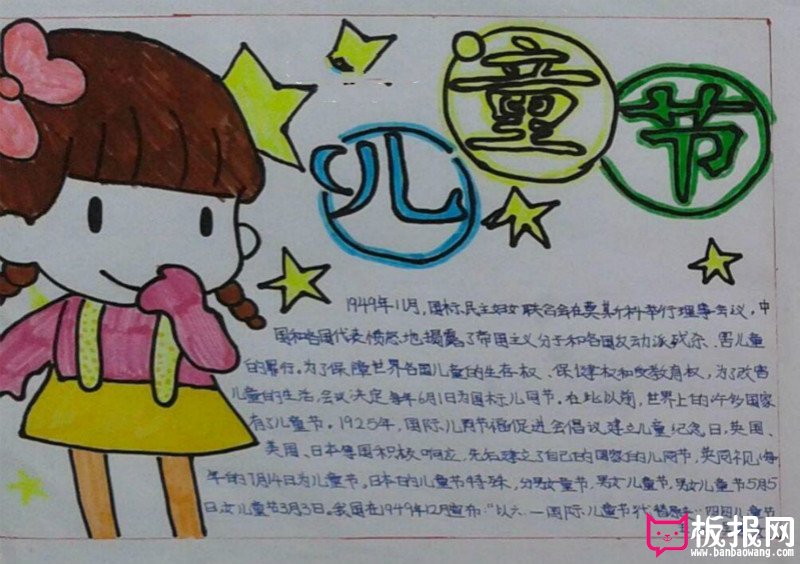 儿童节
1949年11月,国际民主妇女联合会在莫斯科举行理事会议,中
国和各国代表愤怒地揭露了帝国主义分子和各国反动派残杀、害儿童
的罪行。为了保障世界各国儿童的生存权、保健权和受教育权,为了改善
儿童的生活,会议决定每年6月1日为国际儿同节。在此以前,世界上的许多国家
有了儿童节。1925年,国际儿同节福促进会倡议建立儿童纪念日,英国、
美国、日本等国积极响应,先后建立了自己的国家的儿同节,英同
年的7月14日为儿童节。日本的儿童节特殊,分男女童节,男女儿童节,男女儿童节5月5
日,女儿童节3月3日。我国在1949年12月宣布:“以六一国际儿童节代替 四四儿童节
板报网
www.banbaowang.com